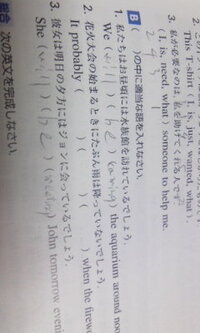 2. この
This T-shirt ( I, is, just, wanted, what ).
3. 私が必要なのは, 私を助けてくれる人です.
( I, is, need, what ) someone to help me.
2 4 3 1
B ( )の中に適当な語を入れなさい.
1. 私たちはお昼頃には水族館を訪れているでしょう.
We ( will ) ( be ) ( ) the aquarium around noon
2. 花火大会の始まるときにたぶん雨は降っていないでしょう.
It probably ( ) ( ) ( ) when the firew
3. 彼女は明日の夕方にはジョンに会っているでしょう.
She ( will ) ( be ) ( ) John tomorrow eveni
総合 次の英文を完成しなさい.